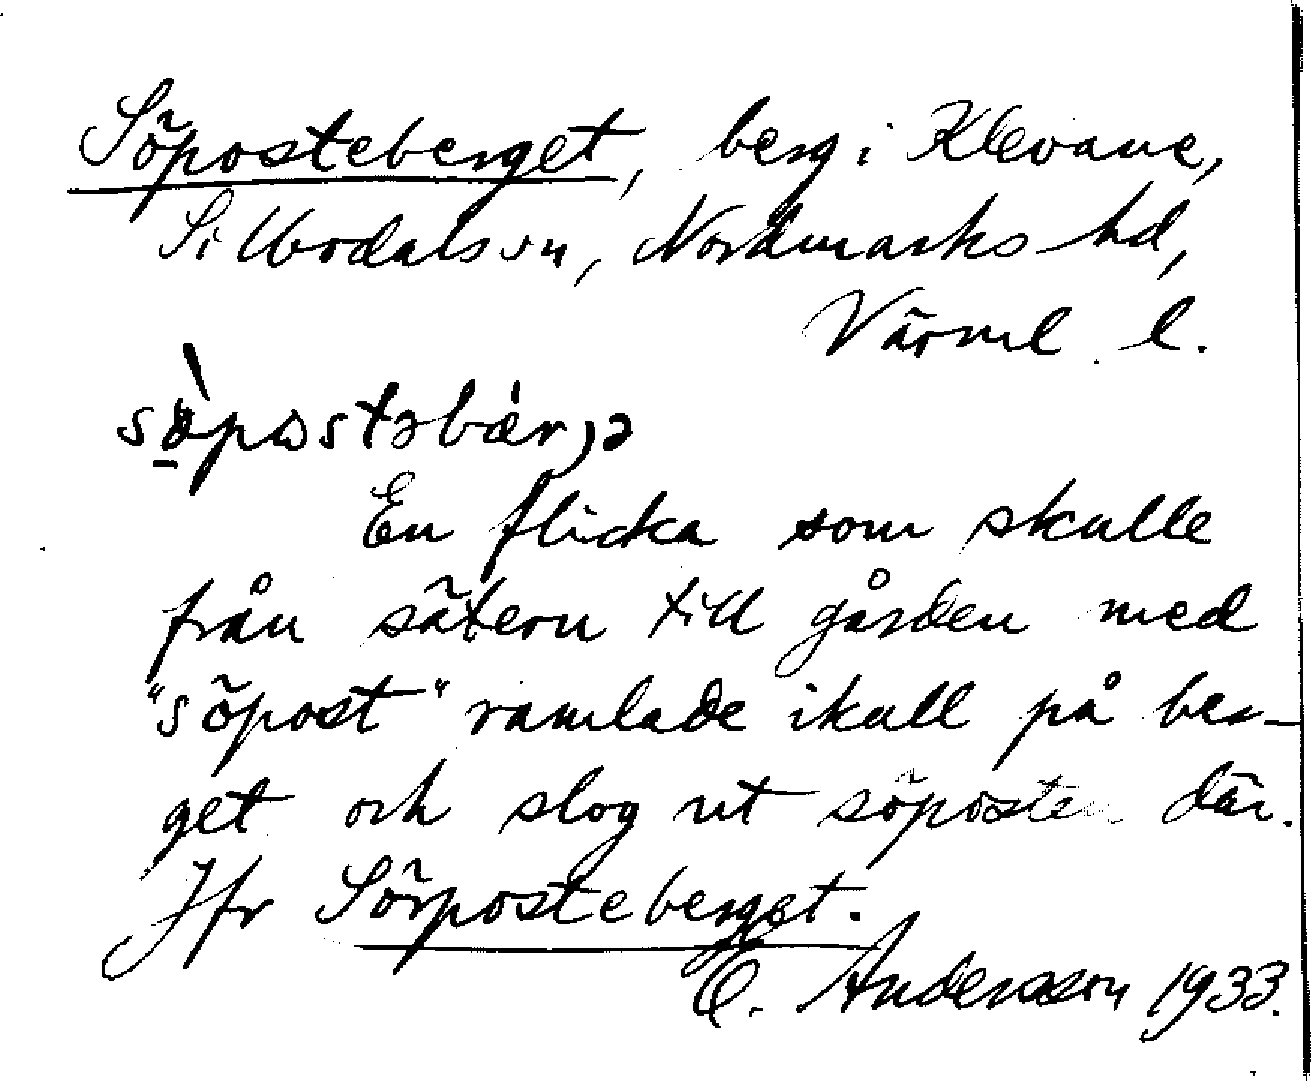 Söposteberget, berg i Klevane,
Sillbodals sn, Nordmarks hd,
Värml. l.
sö̀pɷstəbǽr,ə
En flicka som skulle
från sätern till gården med
"söpost" ramlade ikull på ber-
get och slog ut söposten där.
Jfr Sörposteberget.
O. Andersson 1933.